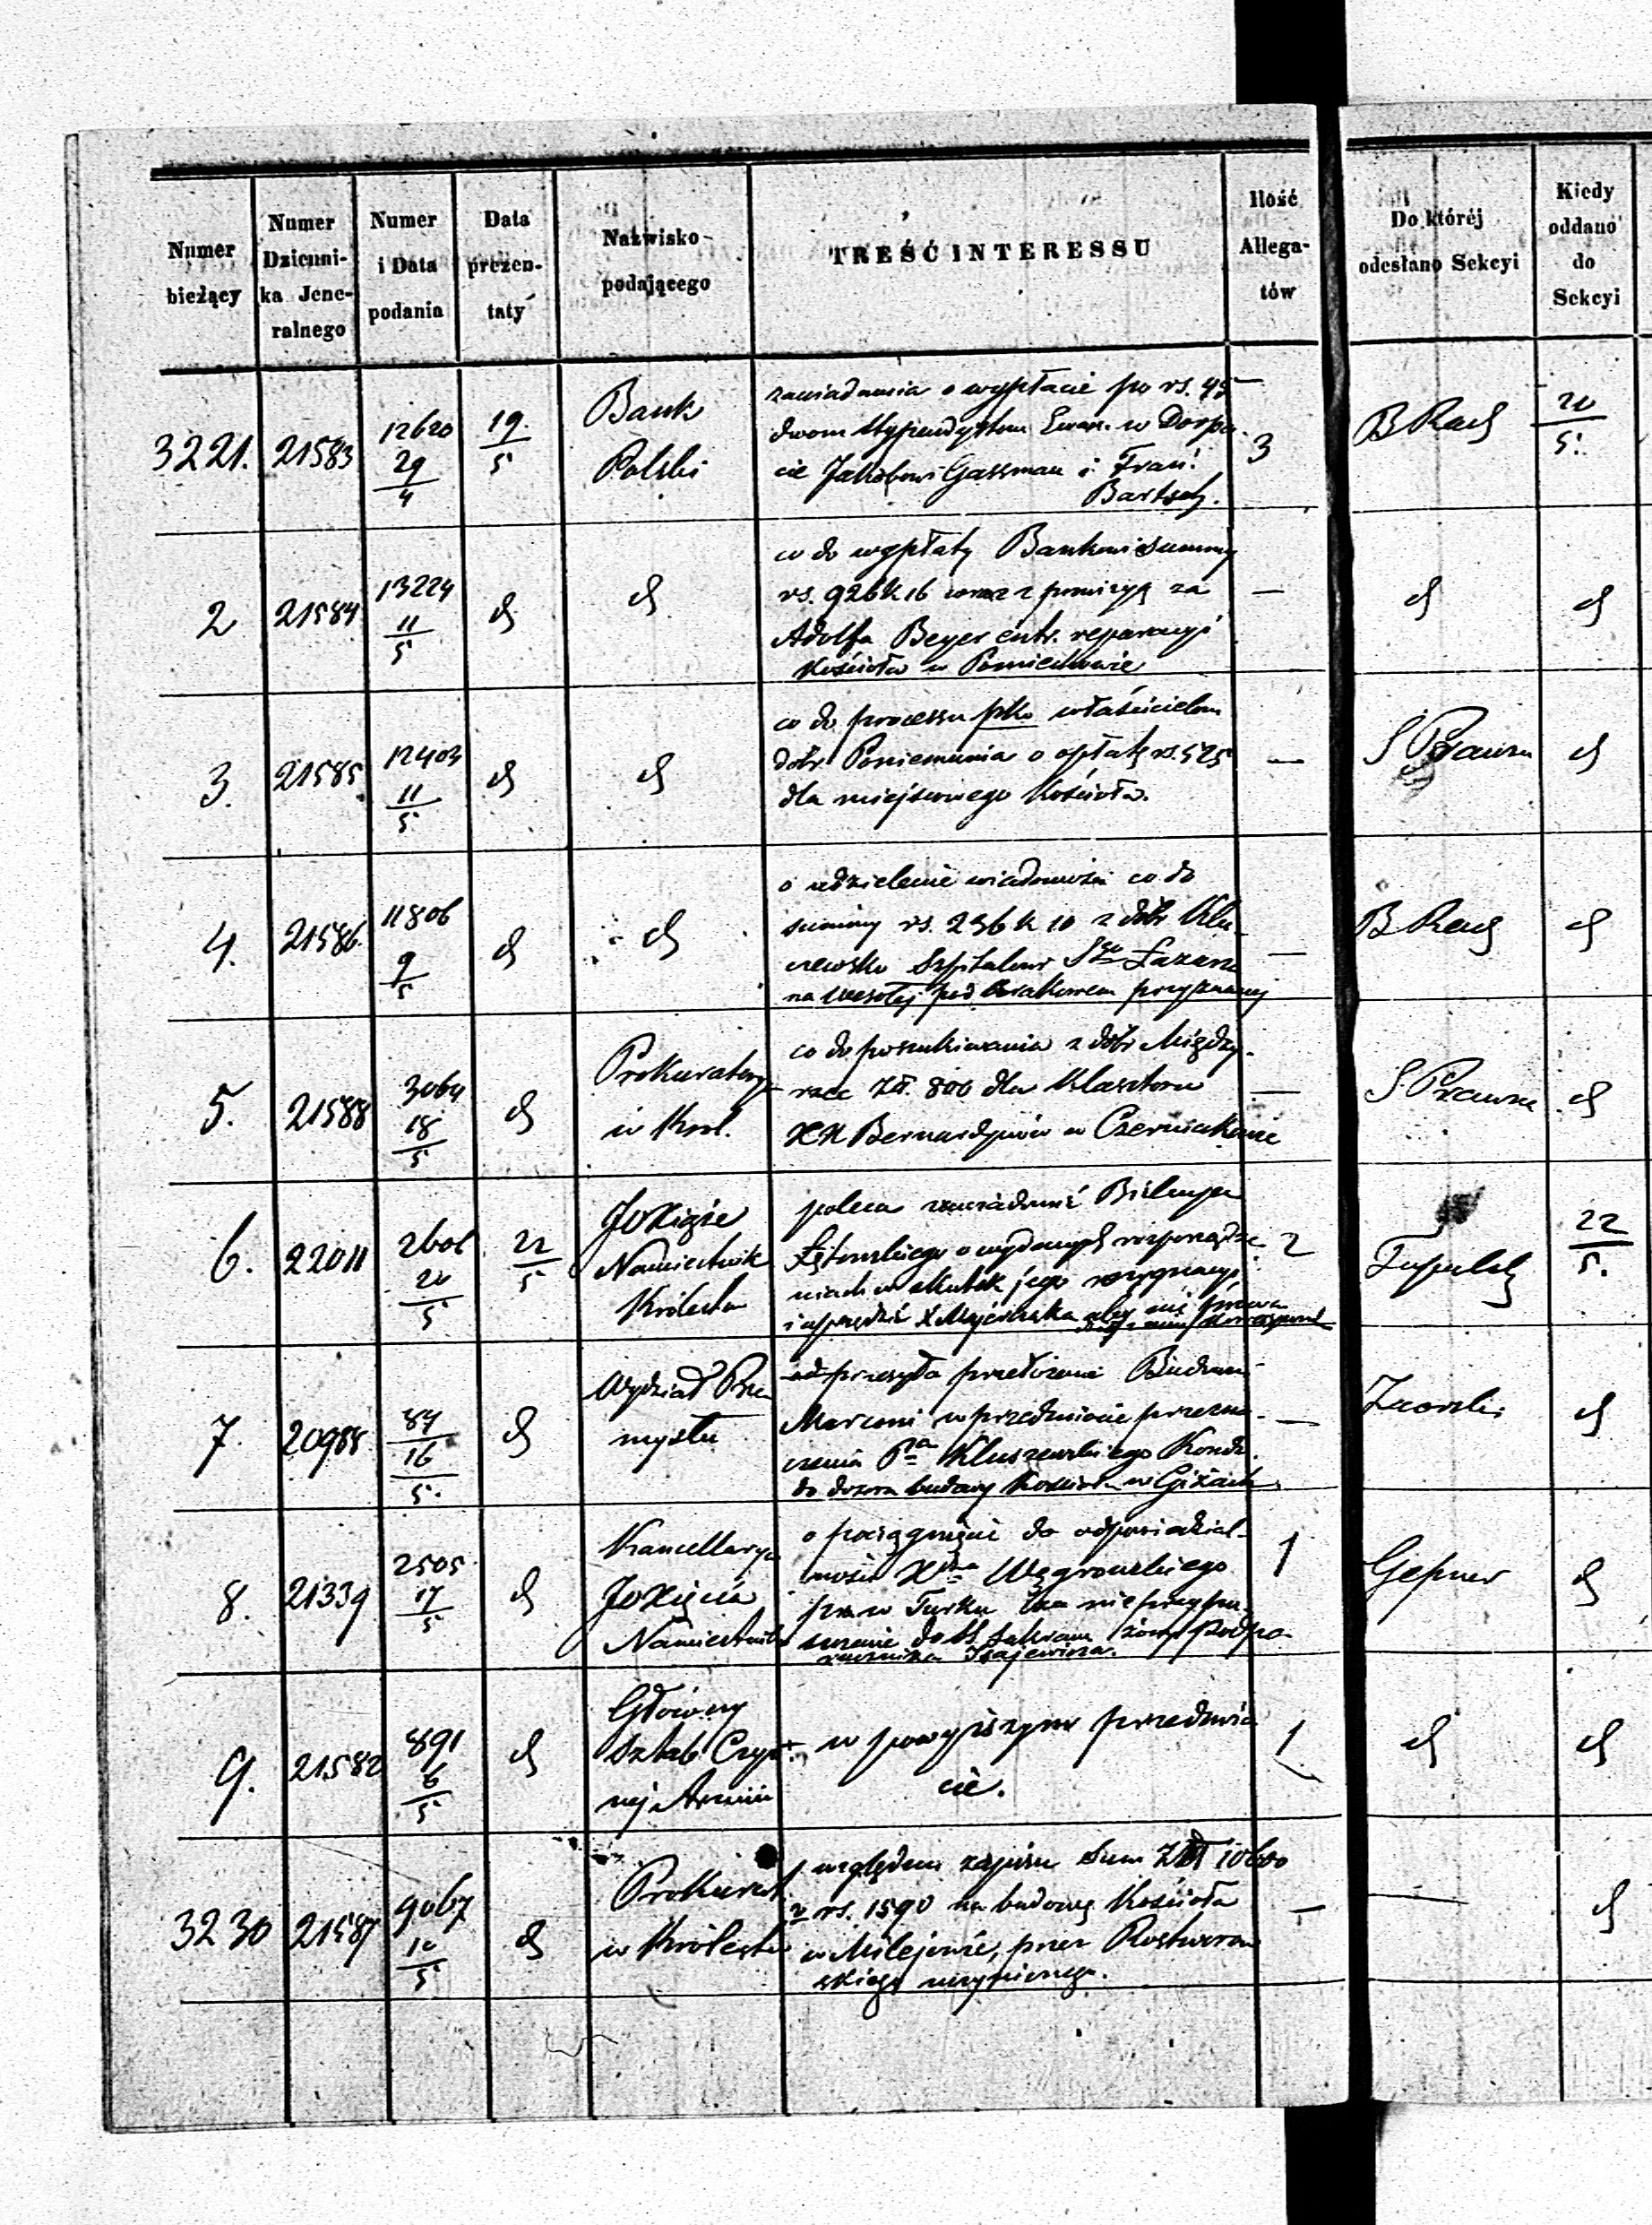 Numer bieżący
Numer Dzienni-ka Jene-ralnego
Numer i Data podania
Data prezen-taty
Nazwisko podającego
TREŚĆ INTERESSU
Ilość Allega-tów
Do któréj odesłano Sekcyi
Kiedy oddano do Sekcyi
3221. 21583 12620 29/4 19/5
Bank
Polski
zawiadamia o wypłacie po rs. 45
dwom Stypendystom Ewan. w Dorpa-
cie Jakóbowi Gassman i Fran.
Bartsch.
3 B Rach 20/5.
2 21584 13224 11/5 d d
co do wypłaty Bankowi summy
rs. 926 k 16 wraz z prowizyą za
Adolfa Beyer entr. reparacyi
Kościoła w Pomiechowie
— d d
3. 21585 12403 11/5 d d
co do processu pko właścicielom
dóbr Poniemunia o opłatę rs. 525
dla miejscowego Kościoła.
— S Prawna d
4. 21586 11806 9/5 d d
o udzielenie wiadomości co do
summy rs. 236 k 10 z dóbr Klu-
czewsko Szpitalowi Sgo Łazarza
na Wesołej pod Krakowem przyznanej
— B Rach d
5. 21588 3064 18/5 d
Prokuratorya
w Król.
co do poszukiwania z dóbr Między-
rzec Zł. 800 dla Klasztoru
XX Bernardynów w Czerniakowie
— S Prawna d
6. 22011 2601 20/5 22/5
JOXiąże
Namiestnik
Królestwa
poleca zawiadomić Biskupa
Łętowskiego o wydanych rozporządze-
niach w skutek jego rezygnacyi
i uprzedzić X Majerczaka aby nie
2 22/5.
7. 20988 84 16/5. d
Wydział Prze
mysłu
odprzesyła przełożenie Budown.
Marconi w przedmiocie przezna-
czenia Pna Kluszewskiego Kond.
do dozoru budowy Kościoła w Giżach
— d
8. 21339 2505 17/5 d
Kancellarya
JOXięcia
Namiestnika
o pociągnięcie do odpowiedzial-
ności Xdza Węgrowskiego
w Turku za nieprzypu-
szczenie do S. Sakram żony Podpo-
rucznika Izajewicza.
1 Gepner d
9. 21582 891 6/5 d
Główny
Sztab Czyn-
nej Armii
w powyższym przedmio
cie.
1 d d
3230 21587 9067 10/5 d
Prokurat.
w Królestw
względem zapisu Sum Zł 10600
v rs. 1590 na budowę Kościoła
w Milejowie, przez Rostworow
skiego uczynionego.
— — d